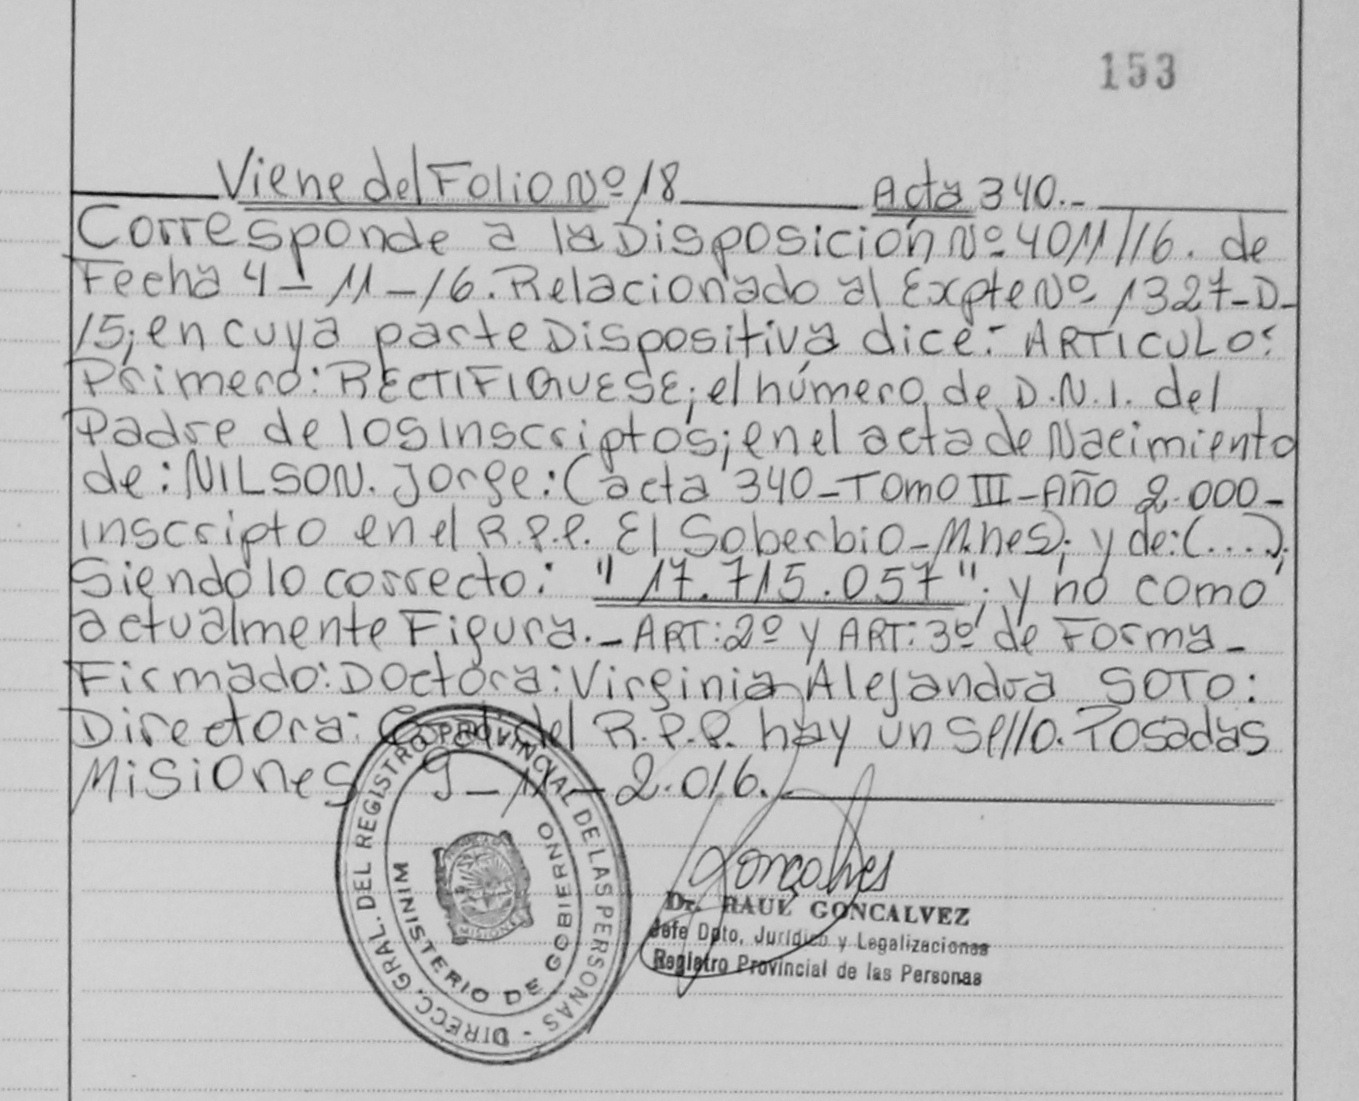 153
Viene del Folio Nº 18 Acta 340.-
Corresponde a la Disposición Nº 4011/16. de
Fecha 4-11-16. Relacionado al Expte Nº 1327-D-
15; en cuya parte Dispositiva dice: ARTICULO:
Primero: RECTIFIQUESE; el número de D.N.I. del
Padre de los inscriptos; en el acta de Nacimiento
de: NILSON. Jorge: (acta 340-Tomo III-Año 2.000-
inscripto en el R.P.P. El Soberbio-M.nes); y de: (...);
Siendo lo correcto: "17.715.057"; y no como
actualmente Figura.- ART: 2º y ART: 3º de Forma-
Firmado: Doctora: Virginia Alejandra SOTO:
Directora: Gral. del R.P.P. hay un sello. Posadas
Misiones 9-11-2.016.-
DIRECC. GRAL. DEL REGISTRO PROVINCIAL DE LAS PERSONAS -
MINISTERIO DE GOBIERNO
MISIONES
Goncalves
Dr. RAUL GONCALVEZ
Jefe Dpto. Jurídico y Legalizaciones
Registro Provincial de las Personas